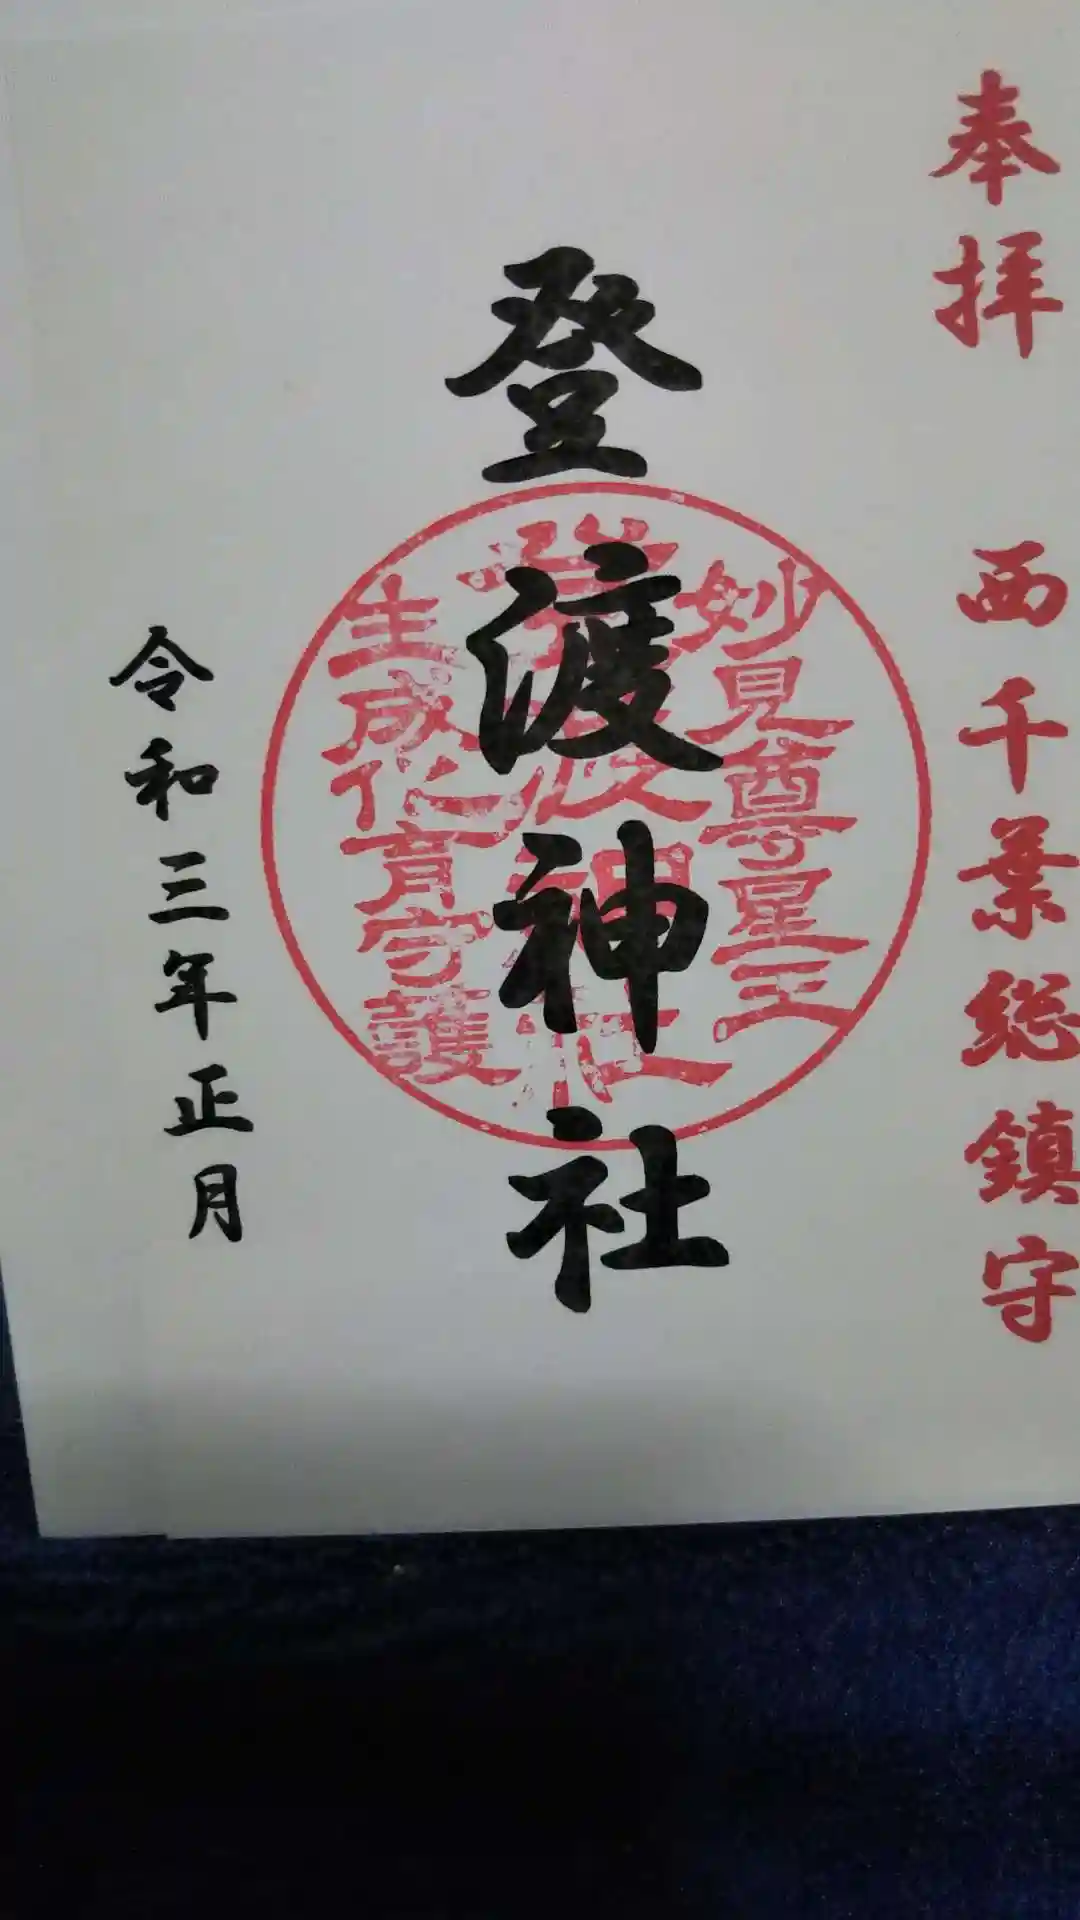 奉拝 西千葉総鎮守
登渡神社
妙見尊星王
登渡神社
生成化育守護
令和三年正月